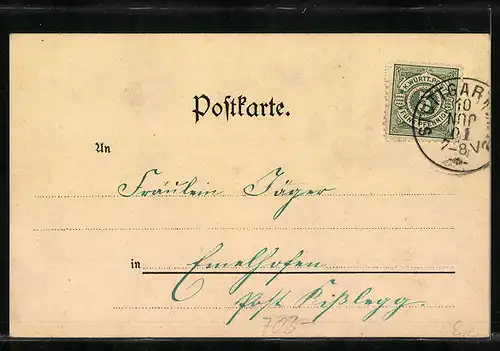 Postkarte.
K. WÜRTT. POST
FÜNF PFENNIG
STUTTGART
10
NOV
01
7-8 V
An
Fräulein Jäger
in Emelhofen
Post Kißlegg.